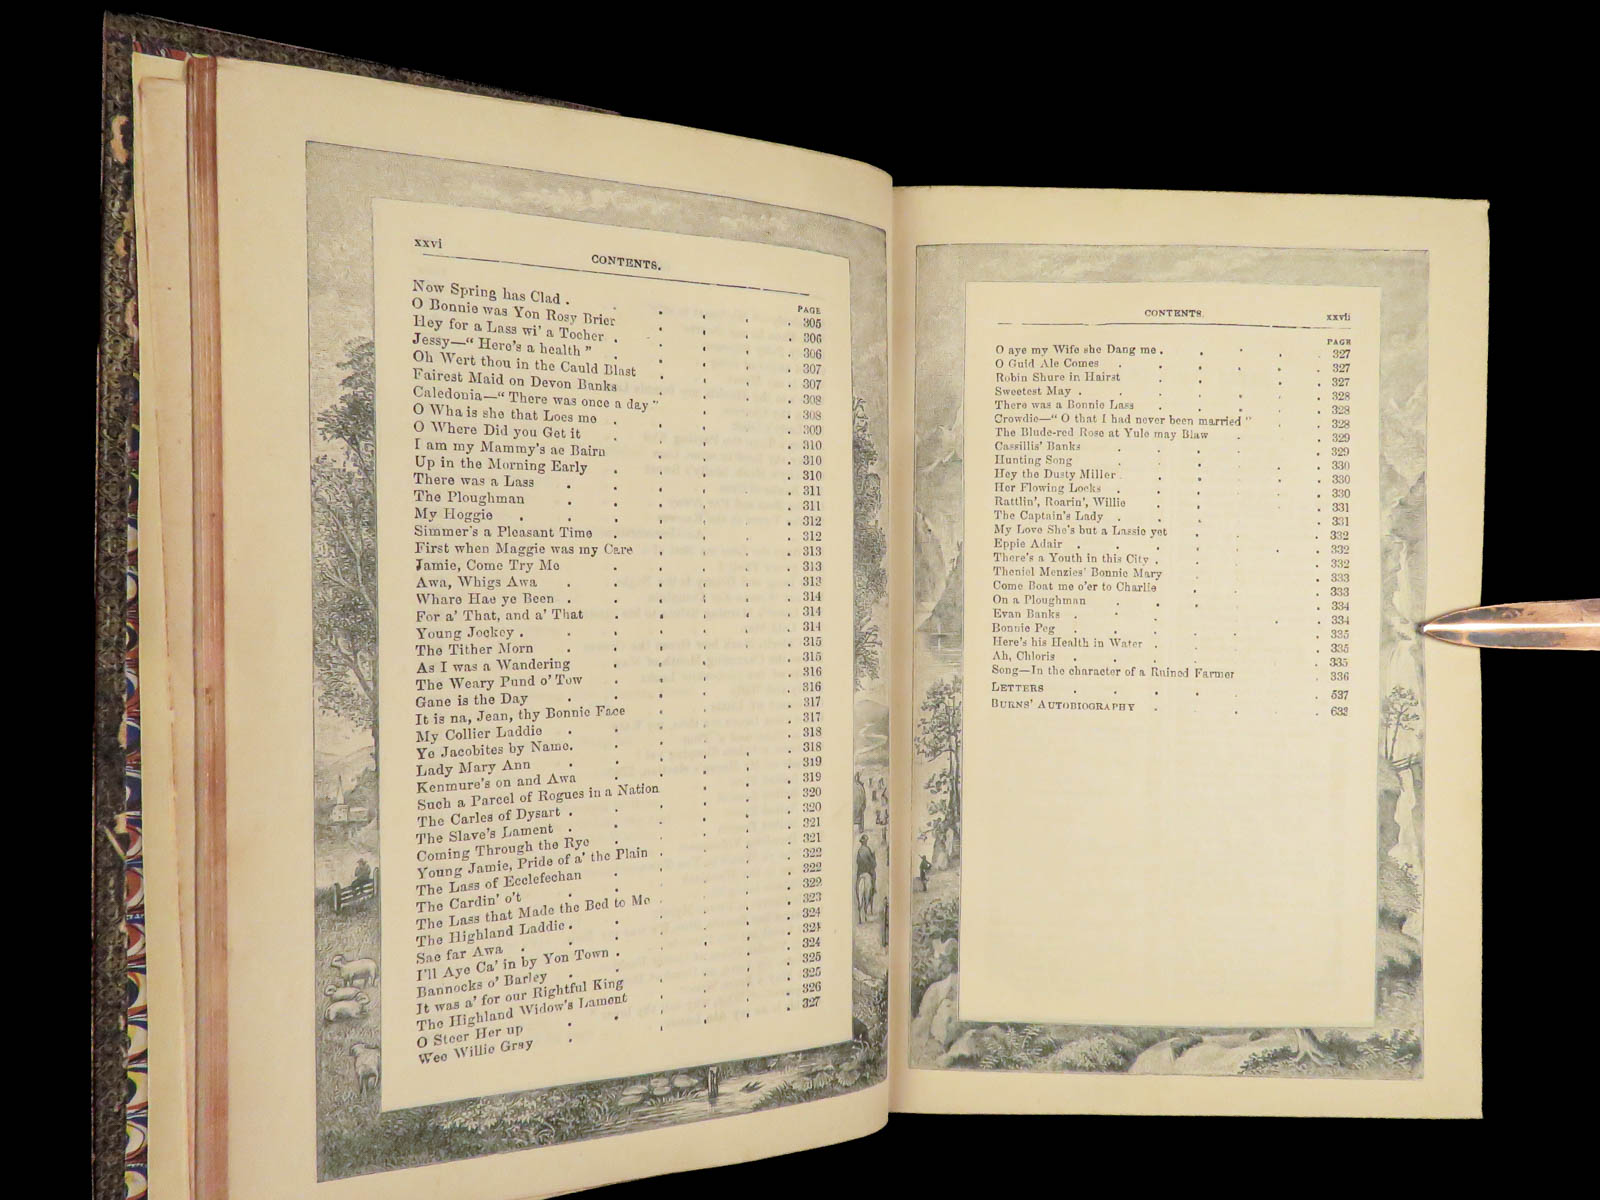 xxvi
CONTENTS.
PAGE
Now Spring has Clad . 305
O Bonnie was Yon Rosy Brier 306
Hey for a Lass wi' a Tocher . 306
Jessy—“ Here's a health ” 307
Oh Wert thou in the Cauld Blast 307
Fairest Maid on Devon Banks 308
Caledonia—“ There was once a day ” 308
O Wha is she that Loes me 309
O Where Did you Get it 310
I am my Mammy's ae Bairn 310
Up in the Morning Early 310
There was a Lass 311
The Ploughman 311
My Hoggie 312
Simmer's a Pleasant Time 312
First when Maggie was my Care 313
Jamie, Come Try Me 313
Awa, Whigs Awa 313
Whare Hae ye Been . 314
For a' That, and a' That 314
Young Jockey . 314
The Tither Morn 315
As I was a Wandering 315
The Weary Pund o' Tow 316
Gane is the Day 316
It is na, Jean, thy Bonnie Face 317
My Collier Laddie 317
Ye Jacobites by Name. 318
Lady Mary Ann 318
Kenmure's on and Awa 319
Such a Parcel of Rogues in a Nation 319
The Carles of Dysart . 320
The Slave's Lament . 320
Coming Through the Rye 321
Young Jamie, Pride of a' the Plain 321
The Lass of Ecclefechan 322
The Cardin' o't 322
The Lass that Made the Bed to Me 322
The Highland Laddie . 323
Sae far Awa 324
I'll Aye Ca' in by Yon Town . 324
Bannocks o' Barley 324
It was a' for our Rightful King 325
The Highland Widow's Lament 325
O Steer Her up 326
Wee Willie Gray 327
CONTENTS.
xxvii
PAGE
O aye my Wife she Dang me . 327
O Guid Ale Comes 327
Robin Shure in Hairst 327
Sweetest May . 328
There was a Bonnie Lass 328
Crowdie—“ O that I had never been married ” 328
The Blude-red Rose at Yule may Blaw 329
Cassillis' Banks 329
Hunting Song 330
Hey the Dusty Miller 330
Her Flowing Locks 330
Rattlin', Roarin', Willie 331
The Captain's Lady 331
My Love She's but a Lassie yet 332
Eppie Adair 332
There's a Youth in this City . 332
Theniel Menzies' Bonnie Mary 333
Come Boat me o'er to Charlie 333
On a Ploughman 334
Evan Banks 334
Bonnie Peg 335
Here's his Health in Water 335
Ah, Chloris 335
Song—In the character of a Ruined Farmer 336
LETTERS 537
BURNS' AUTOBIOGRAPHY 633